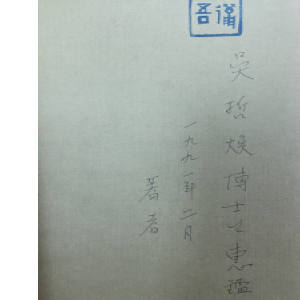 吳哲煥博士之惠鑑
一九九一年二月
著者